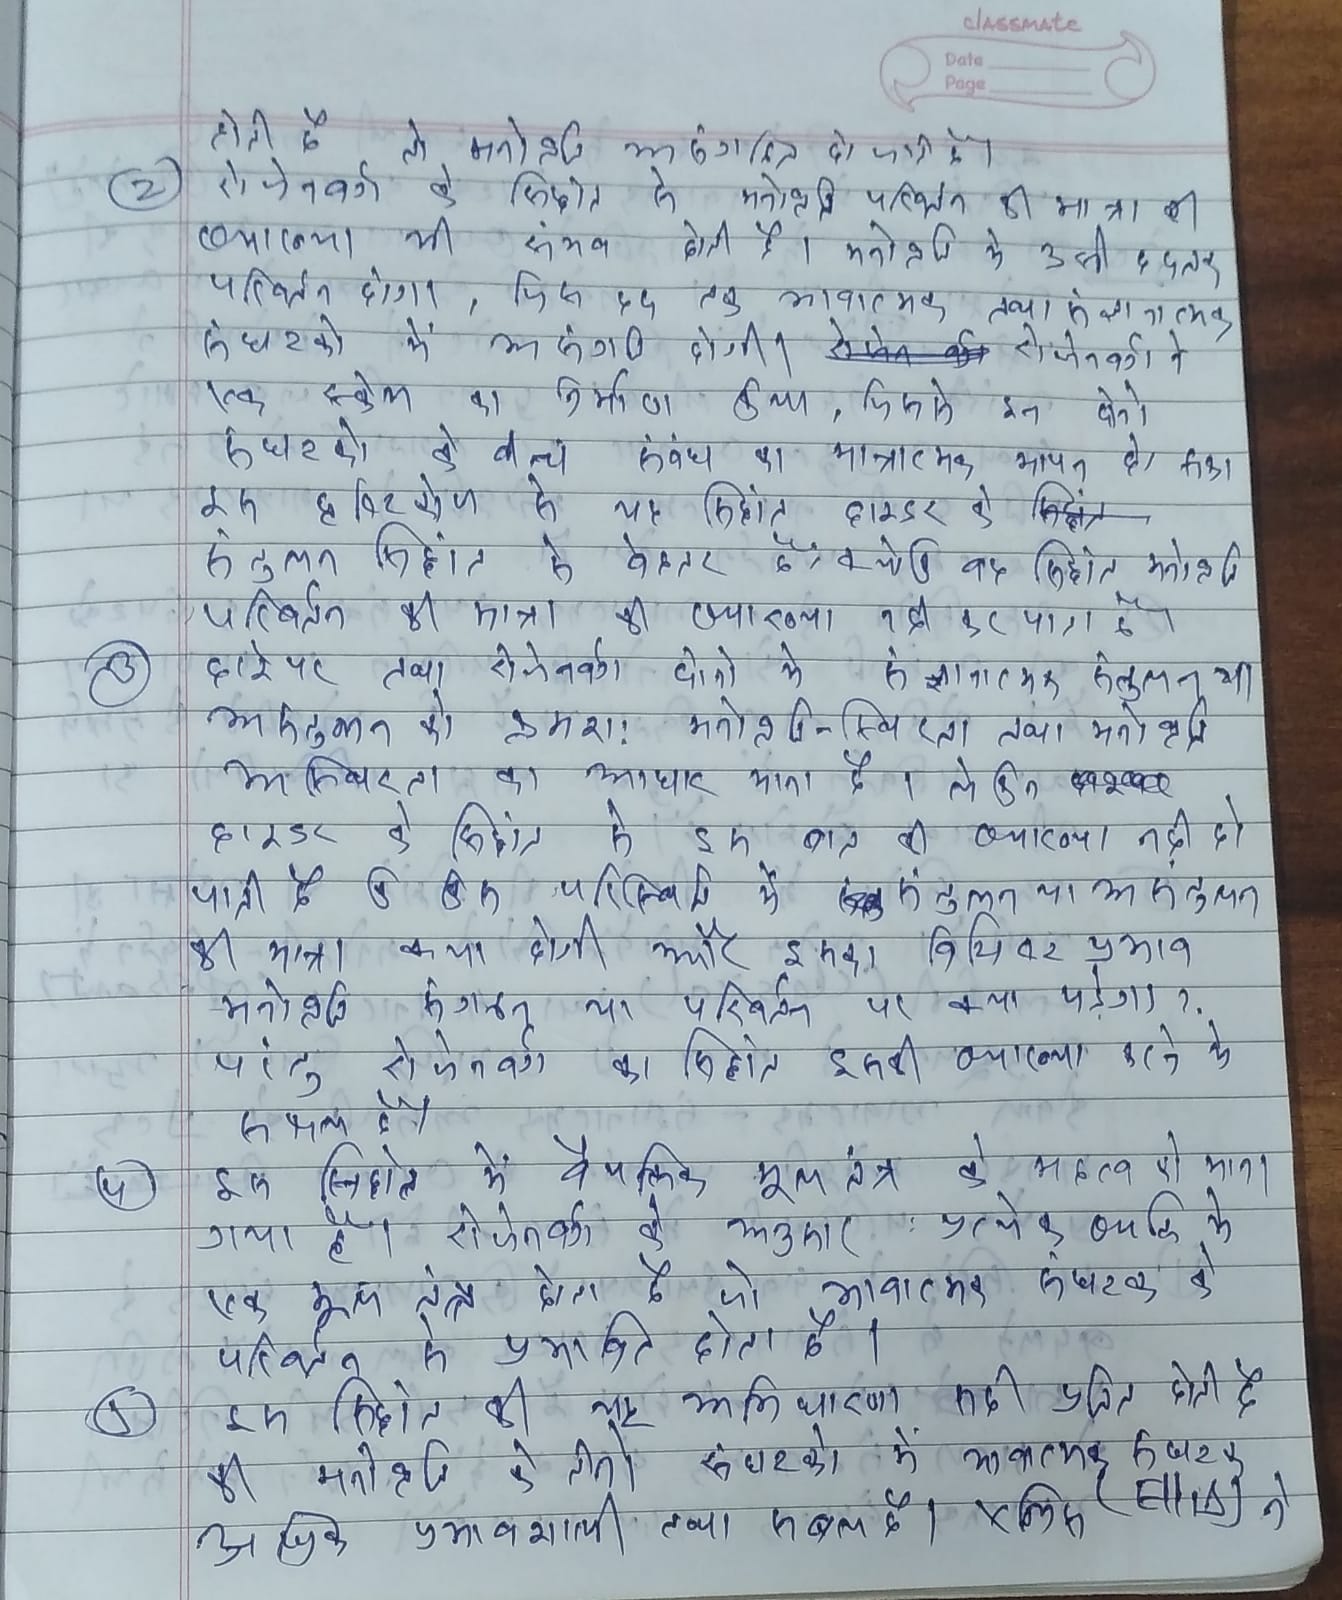 classmate
Date
Page
होती है तो मनोवृत्ति असंगठित हो जाती है।
② रोजेनबर्ग के सिद्धांत से मनोवृत्ति परिवर्तन की मात्रा की
व्याख्या भी संभव होती है। मनोवृत्ति में उसी हद तक
परिवर्तन होगा, जिस हद तक भावात्मक तथा संज्ञानात्मक
संघटकों में असंगति होगी। रोजेनबर्ग ने
एक स्केल का निर्माण किया, जिससे इन दोनों
संघटकों के बीच संबंध का मात्रात्मक मापन हो सका
इस दृष्टिकोण से यह सिद्धांत हाइडर के सिद्धांत
संतुलन सिद्धांत से बेहतर है, क्योंकि वह सिद्धांत मनोवृत्ति
परिवर्तन की मात्रा की व्याख्या नहीं कर पाता है।
③ तथा रोजेनबर्ग दोनों ने संज्ञानात्मक संतुलन या
असंतुलन को क्रमशः मनोवृत्ति-स्थिरता तथा मनोवृत्ति
अस्थिरता का आधार माना है। लेकिन
हाइडर के सिद्धांत से इस बात की व्याख्या नहीं हो
पाती है कि किस परिस्थिति में संतुलन या असंतुलन
की मात्रा क्या होगी और इसका विशिष्ट प्रभाव
मनोवृत्ति संगठन या परिवर्तन पर क्या पड़ेगा?
परंतु रोजेनबर्ग का सिद्धांत इसकी व्याख्या करने में
सफल है।
④ इस सिद्धांत में वैयक्तिक मूल्य तंत्र के महत्व को माना
गया है। रोजेनबर्ग के अनुसार प्रत्येक व्यक्ति में
एक मूल्य तंत्र होता है जो भावात्मक संघटक के
परिवर्तन से प्रभावित होता है।
⑤ इस सिद्धांत की यह अभिधारणा सही प्रतित होती है
की मनोवृत्ति के तीनों संघटकों में भावात्मक संघटक
अधिक प्रभावशाली तथा सबल है। एलिस (Ellis) ने